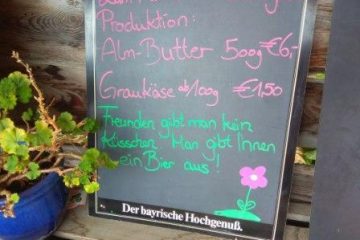 Produktion:
Alm-Butter 500g €6,-
Graukäse ab 100g €1,50
Freunden gibt man kein
Küsschen. Man gibt Ihnen
ein Bier aus!
Der bayrische Hochgenuß.